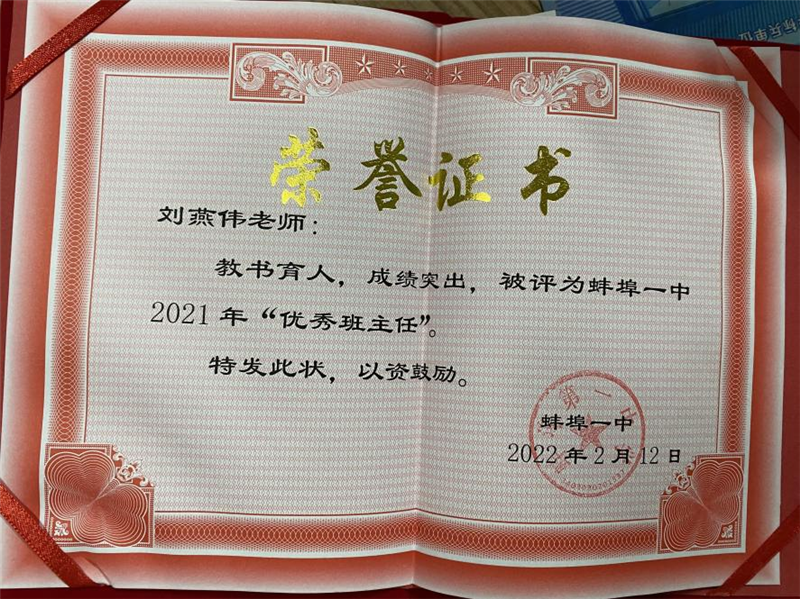 荣誉证书
刘燕伟老师：
教书育人，成绩突出，被评为蚌埠一中
2021年“优秀班主任”。
特发此状，以资鼓励。
蚌埠一中
2022年2月12日